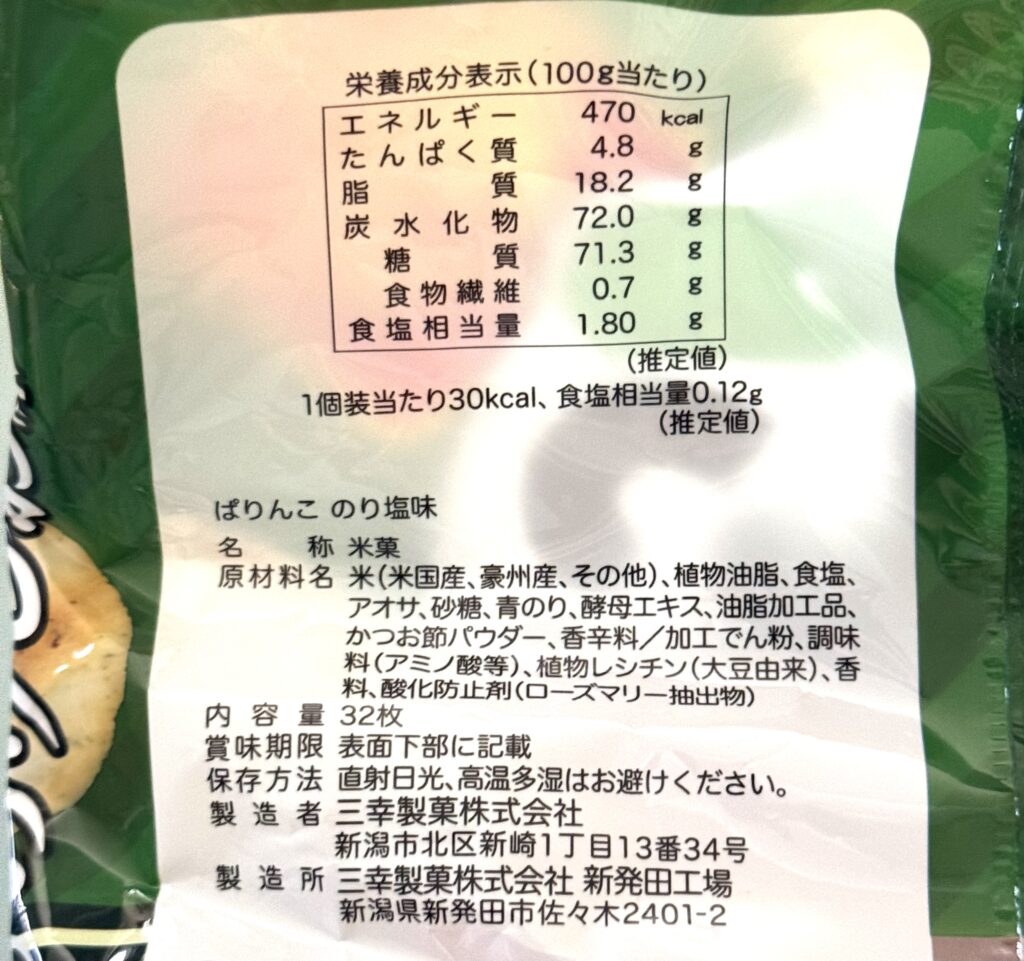 栄養成分表示(100g当たり)
エネルギー 470 kcal
たんぱく質 4.8 g
脂質 18.2 g
炭水化物 72.0 g
糖質 71.3 g
食物繊維 0.7 g
食塩相当量 1.80 g
(推定値)
1個装当たり30kcal、食塩相当量0.12g
(推定値)
ぱりんこ のり塩味
名称 米菓
原材料名 米(米国産、豪州産、その他)、植物油脂、食塩、
アオサ、砂糖、青のり、酵母エキス、油脂加工品、
かつお節パウダー、香辛料/加工でん粉、調味
料(アミノ酸等)、植物レシチン(大豆由来)、香
料、酸化防止剤(ローズマリー抽出物)
内容量 32枚
賞味期限 表面下部に記載
保存方法 直射日光、高温多湿はお避けください。
製造者 三幸製菓株式会社
新潟市北区新崎1丁目13番34号
製造所 三幸製菓株式会社 新発田工場
新潟県新発田市佐々木2401-2